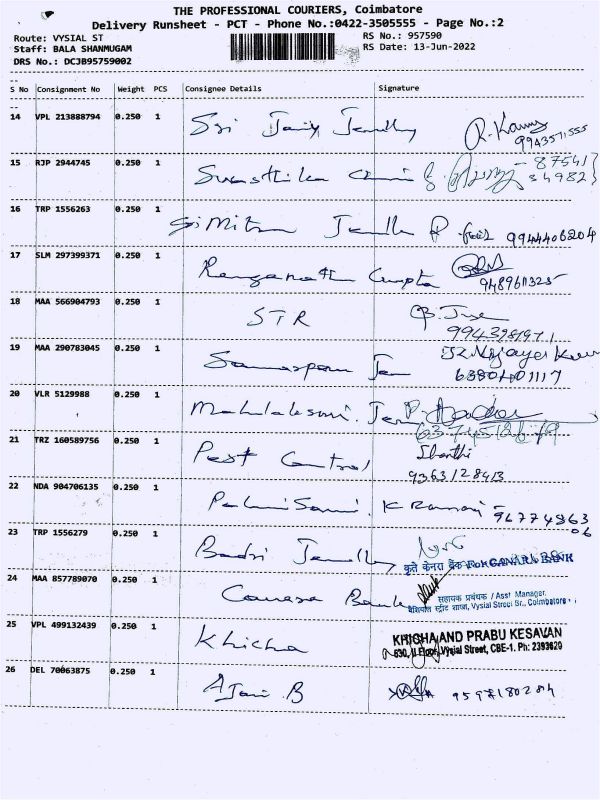 THE PROFESSIONAL COURIERS, Coimbatore
Delivery Runsheet - PCT - Phone No.:0422-3505555 - Page No.:2
Route: VYSIAL ST
RS No.: 957590
Staff: BALA SHANMUGAM
RS Date: 13-Jun-2022
DRS No.: DCJB95759002
S No Consignment No Weight PCS Consignee Details Signature
14 VPL 213888794 0.250 1 Sri Jaiy Jewellry R. Kanny
9943571555
15 RJP 2944745 0.250 1 Swasthika 87541
34982
16 TRP 1556263 0.250 1 Sri Mitra Jewelle 9944406204
17 SLM 297399371 0.250 1 Ranganath Gupta
9489611325
18 MAA 566904793 0.250 1 STR B. Juse
9943981971
19 MAA 290783045 0.250 1
6380401117
20 VLR 5129988 0.250 1 Mahalakshmi. Jew
21 TRZ 160589756 0.250 1 Pest Control Shanthi
9363128413
22 NDA 904706135 0.250 1 Palani Sami. K Ramani 96774863
06
23 TRP 1556279 0.250 1 Badri Jewellry
कृते केनरा बैंक For CANARA BANK
24 MAA 857789070 0.250 1 Canara Bank
सहायक प्रबंधक / Asst Manager
वैशियाल स्ट्रीट शाखा, Vysial Street Br., Coimbatore
25 VPL 499132439 0.250 1 Khicha KHICHA AND PRABU KESAVAN
630, II Floor, Vysial Street, CBE-1. Ph: 2393620
26 DEL 70063875 0.250 1 A Jain B 9597180284